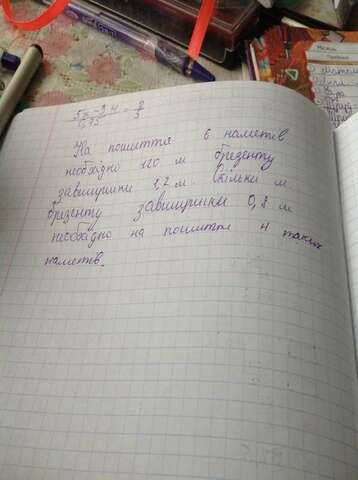 На пошиття 6 наметів
необхідно 120 м брезенту
завширшки 1,2 м. Скільки м
брезенту завширшки 0,8 м
необхідно на пошиття 4 таких
наметів.